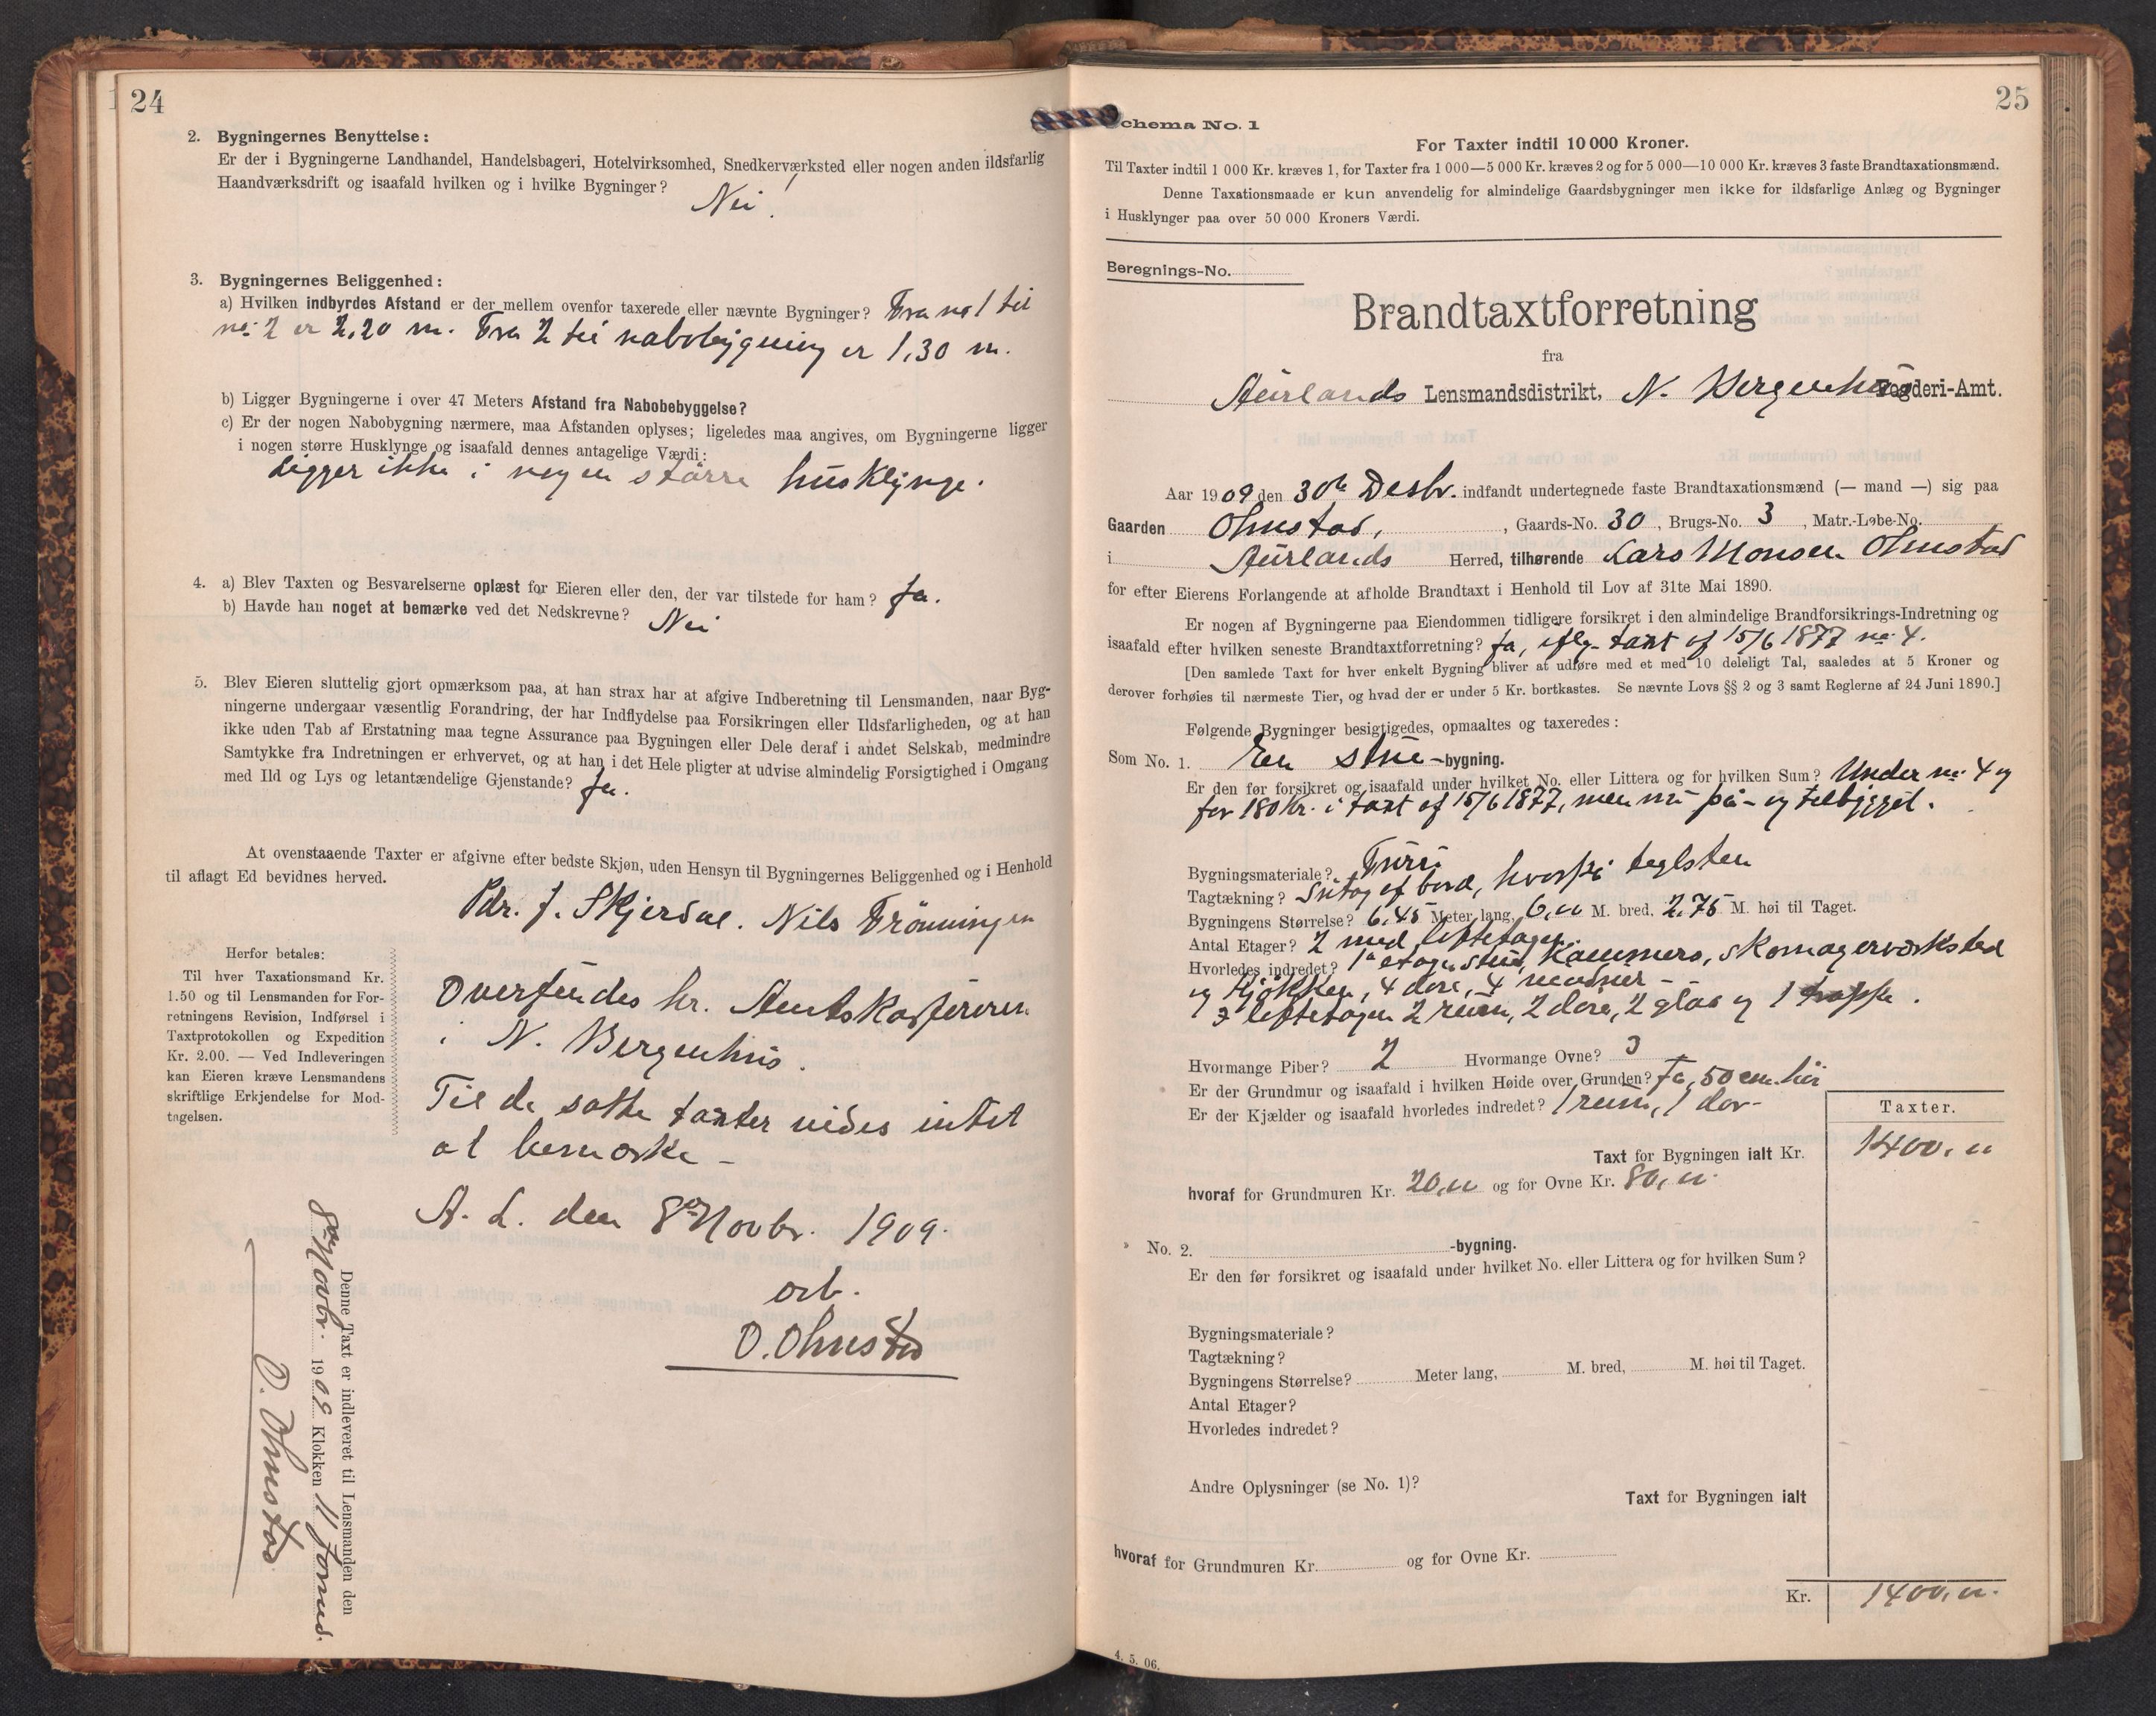 24
2. Bygningernes Benyttelse:
Er der i Bygningerne Landhandel, Handelsbageri, Hotelvirksomhed, Snedkerværksted eller nogen anden ildsfarlig
Haandværksdrift og isaafald hvilken og i hvilke Bygninger?
Nei!
3. Bygningernes Beliggenhed:
a) Hvilken indbyrdes Afstand er der mellem ovenfor taxerede eller nævnte Bygninger? Fra no 1 til
no: 2 er 2,20 m. Fra 2 til nabobygning er 1,30 m.
b) Ligger Bygningerne i over 47 Meters Afstand fra Nabobebyggelse?
c) Er der nogen Nabobygning nærmere, maa Afstanden oplyses; ligeledes maa angives, om Bygningerne ligger
i nogen større Husklynge og isaafald dennes antagelige Værdi:
Ligger ikke i nogen større husklynge.
4. a) Blev Taxten og Besvarelserne oplæst for Eieren eller den, der var tilstede for ham? Ja.
b) Havde han noget at bemærke ved det Nedskrevne? Nei
5. Blev Eieren sluttelig gjort opmærksom paa, at han strax har at afgive Indberetning til Lensmanden, naar Byg-
ningerne undergaar væsentlig Forandring, der har Indflydelse paa Forsikringen eller Ildsfarligheden, og at han
ikke uden Tab af Erstatning maa tegne Assurance paa Bygningen eller Dele deraf i andet Selskab, medmindre
Samtykke fra Indretningen er erhvervet, og at han i det Hele pligter at udvise almindelig Forsigtighed i Omgang
med Ild og Lys og letantændelige Gjenstande? Ja.
At ovenstaaende Taxter er afgivne efter bedste Skjøn, uden Hensyn til Bygningernes Beliggenhed og i Henhold
til aflagt Ed bevidnes herved.
Pdr. J. Skjerdal. Nils Frönningen
Herfor betales:
Til hver Taxationsmand Kr.
1.50 og til Lensmanden for For-
retningens Revision, Indførsel i
Taxtprotokollen og Expedition
Kr. 2.00. — Ved Indleveringen
kan Eieren kræve Lensmandens
skriftlige Erkjendelse for Mod-
tagelsen.
Oversendes hr. Amtskasjereren
i N. Bergenhus.
Til de satte taxter vides intet
at bemærke –
A. L. den 8de Novbr. 1909.
arb.
O. Ohnstad
Denne Taxt er indleveret til Lensmanden den
8de Novbr. 1909 Klokken 11 formd.
O. Ohnstad
25
chema No. 1
For Taxter indtil 10 000 Kroner.
Til Taxter indtil 1 000 Kr. kræves 1, for Taxter fra 1 000—5 000 Kr. kræves 2 og for 5 000—10 000 Kr. kræves 3 faste Brandtaxationsmænd.
Denne Taxationsmaade er kun anvendelig for almindelige Gaardsbygninger men ikke for ildsfarlige Anlæg og Bygninger
i Husklynger paa over 50 000 Kroners Værdi.
Beregnings-No.
Brandtaxtforretning
fra
Aurlands Lensmandsdistrikt, N. Bergenhus Fogderi-Amt.
Aar 1909 den 30te Desbr. indfandt undertegnede faste Brandtaxationsmænd (— mand —) sig paa
Gaarden Ohnstad, , Gaards-No. 30, Brugs-No. 3, Matr.-Løbe-No.
i Aurlands Herred, tilhørende Lars Monsen Ohnstad
for efter Eierens Forlangende at afholde Brandtaxt i Henhold til Lov af 31te Mai 1890.
Er nogen af Bygningerne paa Eiendommen tidligere forsikret i den almindelige Brandforsikrings-Indretning og
isaafald efter hvilken seneste Brandtaxtforretning? Ja, iflg. taxt af 15/6 1877 no: 4.
[Den samlede Taxt for hver enkelt Bygning bliver at udføre med et med 10 deleligt Tal, saaledes at 5 Kroner og
derover forhøies til nærmeste Tier, og hvad der er under 5 Kr. bortkastes. Se nævnte Lovs §§ 2 og 3 samt Reglerne af 24 Juni 1890.]
Følgende Bygninger besigtigedes, opmaaltes og taxeredes:
Som No. 1. En stue-bygning.
Er den før forsikret og isaafald under hvilket No. eller Littera og for hvilken Sum? Under no: 4 og
for 180 kr. i taxt af 15/6 1877, men nu på- og tilbygget.
Bygningsmateriale? Furu
Tagtækning? Sutag af bord, hvorpå teglsten
Bygningens Størrelse? 6,45 Meter lang, 6,00 M. bred, 2,75 M. høi til Taget.
Antal Etager? 2 med loftetagen
Hvorledes indredet? 1ste etage, stue, kammers, skomagerværksted
og kjøkken, 4 døre, 4 vinduer –
I loftetagen 2 rum, 2 døre, 2 glas og 1 trappe.
Hvormange Piber? 2 Hvormange Ovne? 3
Er der Grundmur og isaafald i hvilken Høide over Grunden? Ja, 50 cm. høi
Er der Kjælder og isaafald hvorledes indredet? 1 rum, 1 dør –
Taxter.
Taxt for Bygningen ialt Kr. 1400,00
hvoraf for Grundmuren Kr. 20,00 og for Ovne Kr. 80,00.
No. 2. -bygning.
Er den før forsikret og isaafald under hvilket No. eller Littera og for hvilken Sum?
Bygningsmateriale?
Tagtækning?
Bygningens Størrelse? Meter lang, M. bred, M. høi til Taget.
Antal Etager?
Hvorledes indredet?
Andre Oplysninger (se No. 1)?
Taxt for Bygningen ialt
hvoraf for Grundmuren Kr. og for Ovne Kr.
Kr. 1400,00.
4. 5. 06.